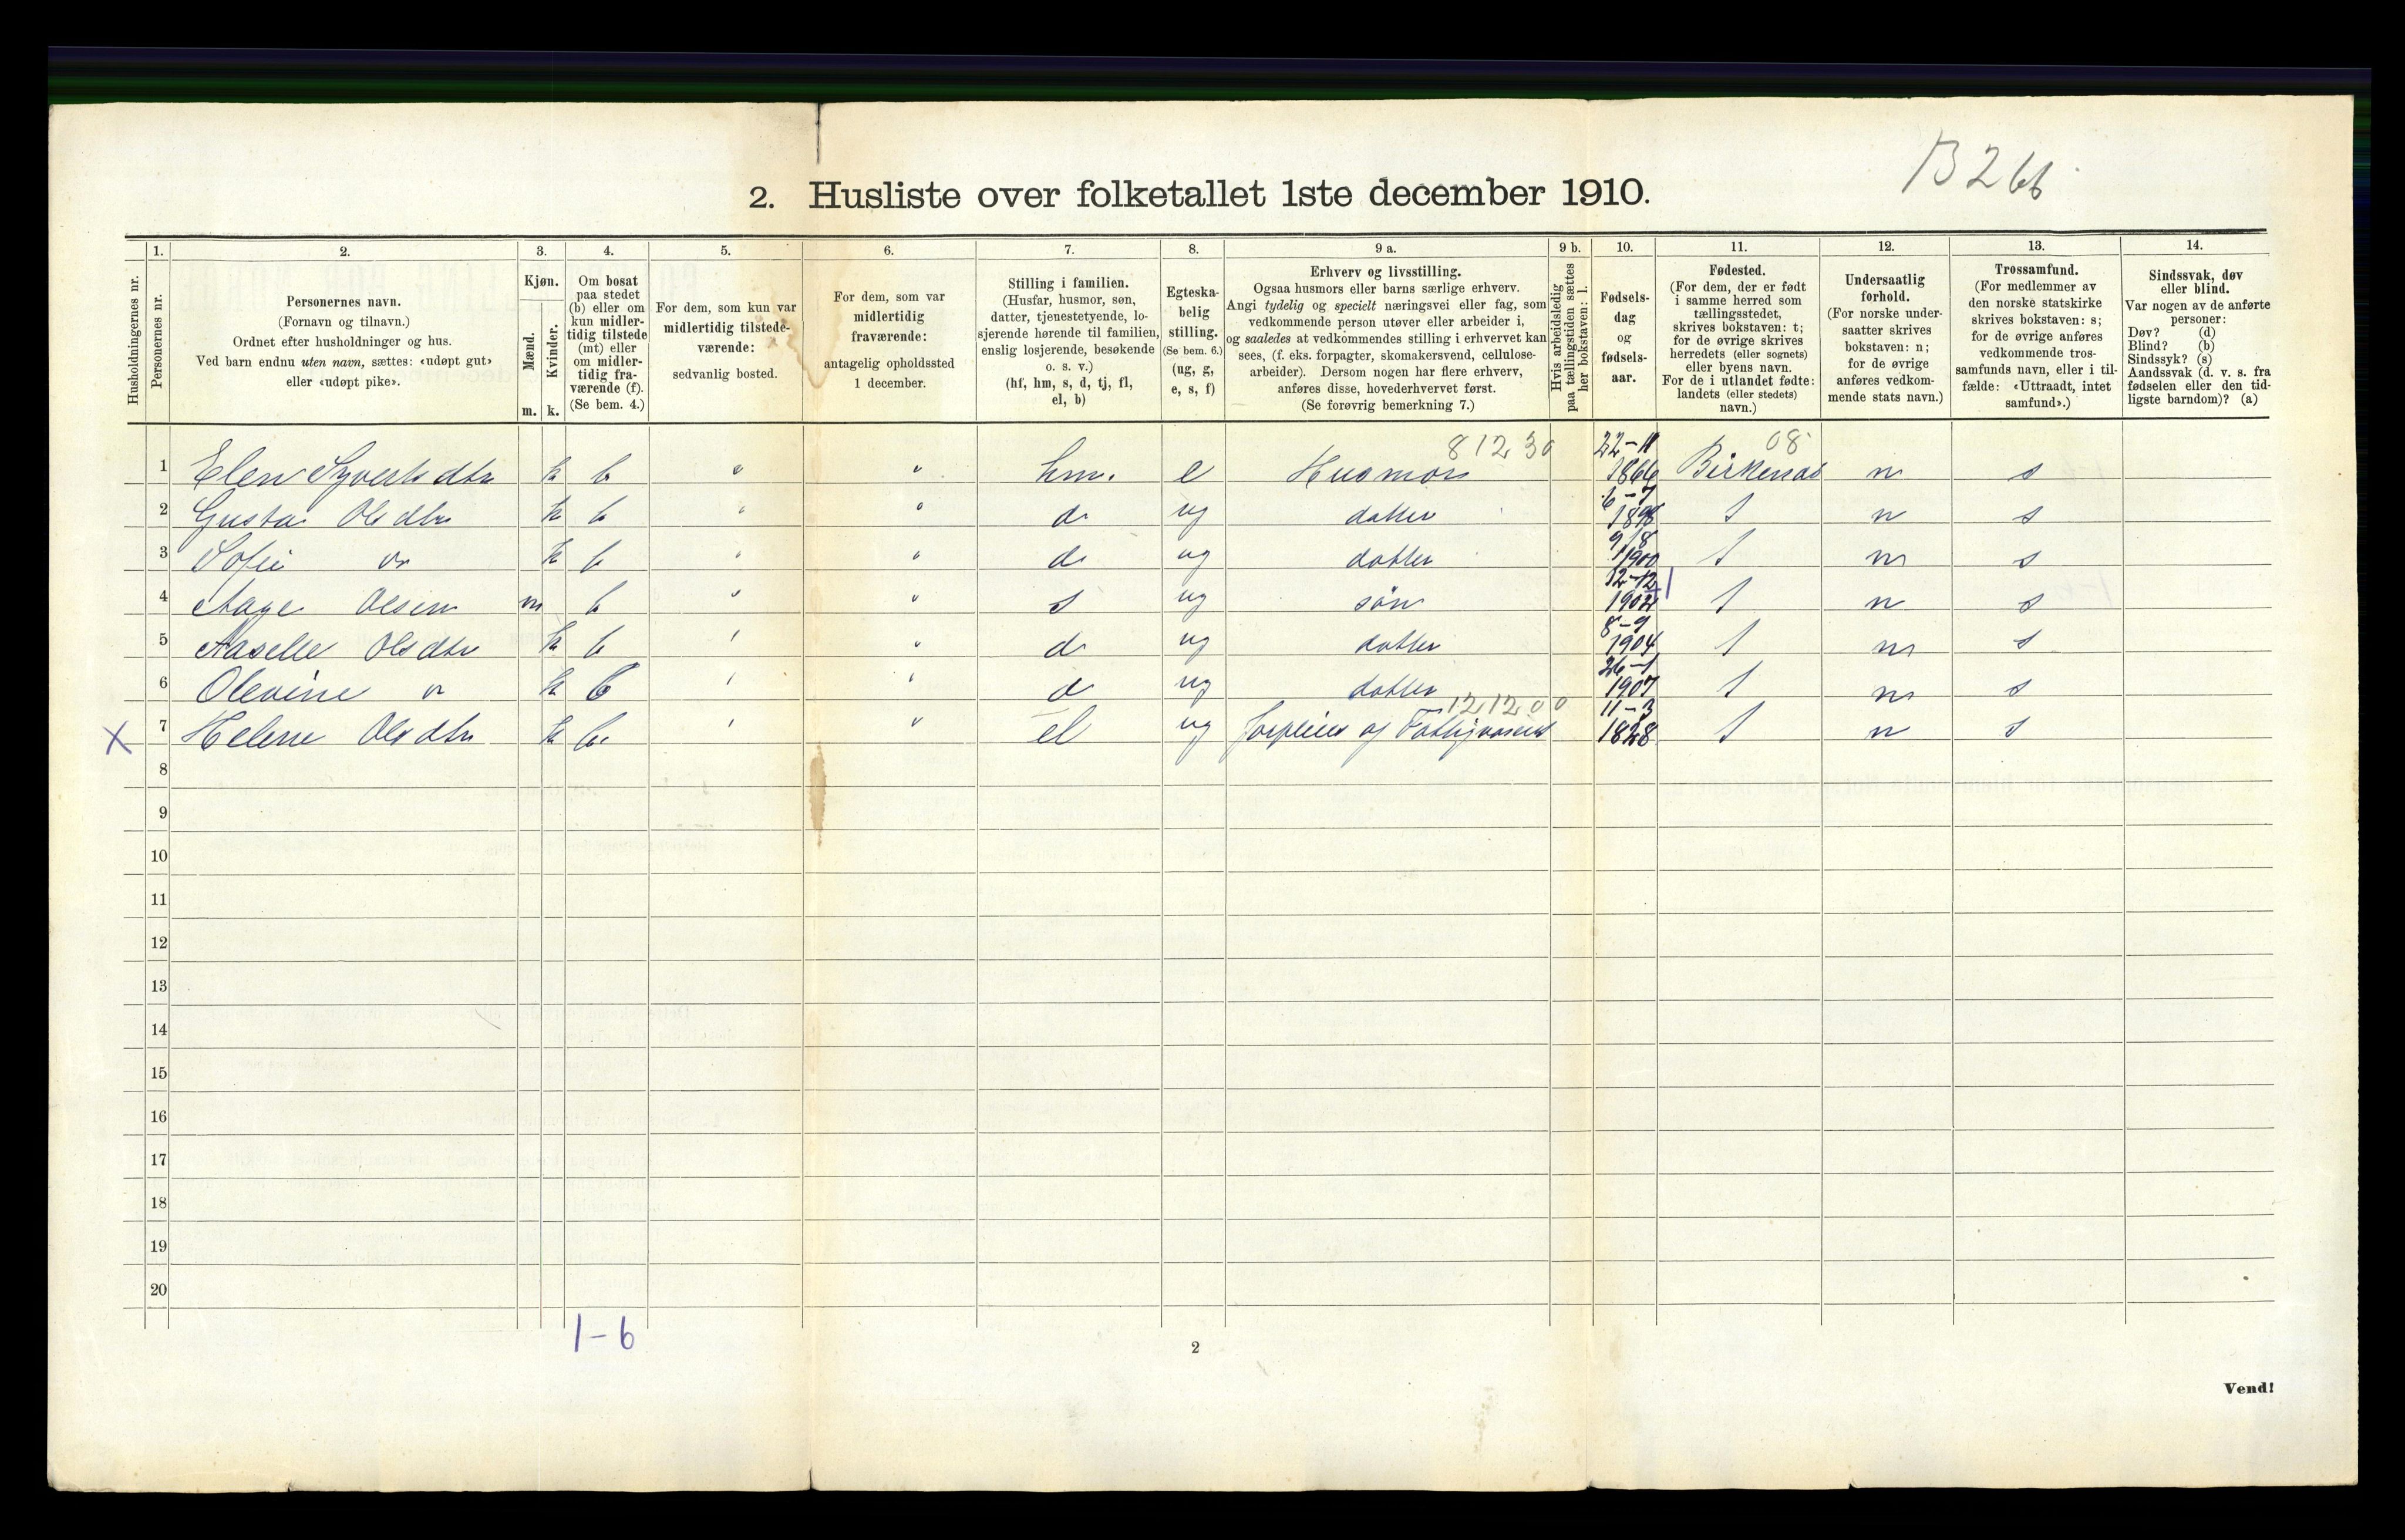 B 266
2. Husliste over folketallet 1ste december 1910.
Husholdningernes nr.
1.
Personernes nr.
2.
Personernes navn.
(Fornavn og tilnavn.)
Ordnet efter husholdninger og hus.
Ved barn endnu uten navn, sættes: «udøpt gut»
eller «udøpt pike».
3.
Kjøn.
Mænd.
Kvinder.
m. k.
4.
Om bosat
paa stedet
(b) eller om
kun midler-
tidig tilstede
(mt) eller
om midler-
tidig fra-
værende (f).
(Se bem. 4.)
5.
For dem, som kun var
midlertidig tilstede-
værende:
sedvanlig bosted.
6.
For dem, som var
midlertidig
fraværende:
antagelig opholdssted
1 december.
7.
Stilling i familien.
(Husfar, husmor, søn,
datter, tjenestetyende, lo-
sjerende hørende til familien,
enslig losjerende, besøkende
o. s. v.)
(hf, hm, s, d, tj, fl,
el, b)
8.
Egteska-
belig
stilling.
(Se bem. 6.)
(ug, g,
e, s, f)
9 a.
Erhverv og livsstilling.
Ogsaa husmors eller barns særlige erhverv.
Angi tydelig og specielt næringsvei eller fag, som
vedkommende person utøver eller arbeider i,
og saaledes at vedkommendes stilling i erhvervet kan
sees, (f. eks. forpagter, skomakersvend, cellulose-
arbeider). Dersom nogen har flere erhverv,
anføres disse, hovederhvervet først.
(Se forøvrig bemerkning 7.)
9 b.
Hvis arbeidsledig
paa tællingstiden sættes
her bokstaven: l.
10.
Fødsels-
dag
og
fødsels-
aar.
11.
Fødested.
(For dem, der er født
i samme herred som
tællingsstedet,
skrives bokstaven: t;
for de øvrige skrives
herredets (eller sognets)
eller byens navn.
For de i utlandet fødte:
landets (eller stedets)
navn.)
12.
Undersaatlig
forhold.
(For norske under-
saatter skrives
bokstaven: n;
for de øvrige
anføres vedkom-
mende stats navn.)
13.
Trossamfund.
(For medlemmer av
den norske statskirke
skrives bokstaven: s;
for de øvrige anføres
vedkommende tros-
samfunds navn, eller i til-
fælde: «Uttraadt, intet
samfund».)
14.
Sindssvak, døv
eller blind.
Var nogen av de anførte
personer:
Døv? (d)
Blind? (b)
Sindssyk? (s)
Aandssvak (d. v. s. fra
fødselen eller den tid-
ligste barndom)? (a)
81230 22-11 08
1 Elen Syvertsdtr k b " " hm. e Husmor 1866 Birkenæs n s
6-7
2 Gusta Olsdtr k b " " d ug datter 1898 t n s
9/8
3 Sofie " k b " " d ug datter 1900 t n s
12-12
4 Aage Olsen m b " " s ug søn 1902 t n s
8-9
5 Aaselle Olsdtr k b " " d ug datter 1904 t n s
26-1
6 Olevine " k b " " d ug datter 1907 t n s
121200 11-3
X 7 Helene Olsdtr k b " " el ug forpleies af Fattigvæsenet 1828 t n s
8
9
10
11
12
13
14
15
16
17
18
19
20
1-6
2
Vend!